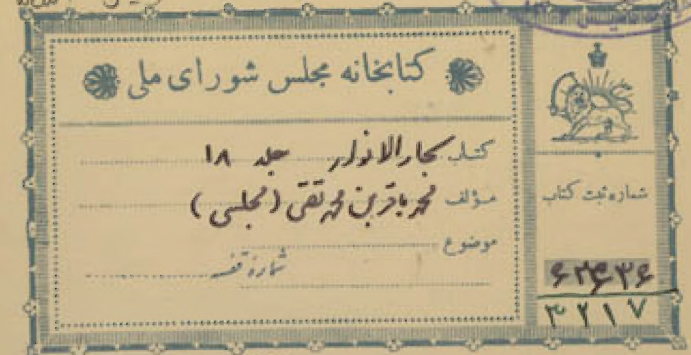 کتابخانه مجلس شورای ملی
کتاب بحارالانوار جلد ۱۸
مؤلف محمد باقر بن محمد تقی (مجلسی)
موضوع
شماره قفسه
شماره ثبت کتاب
۳۲۱۷